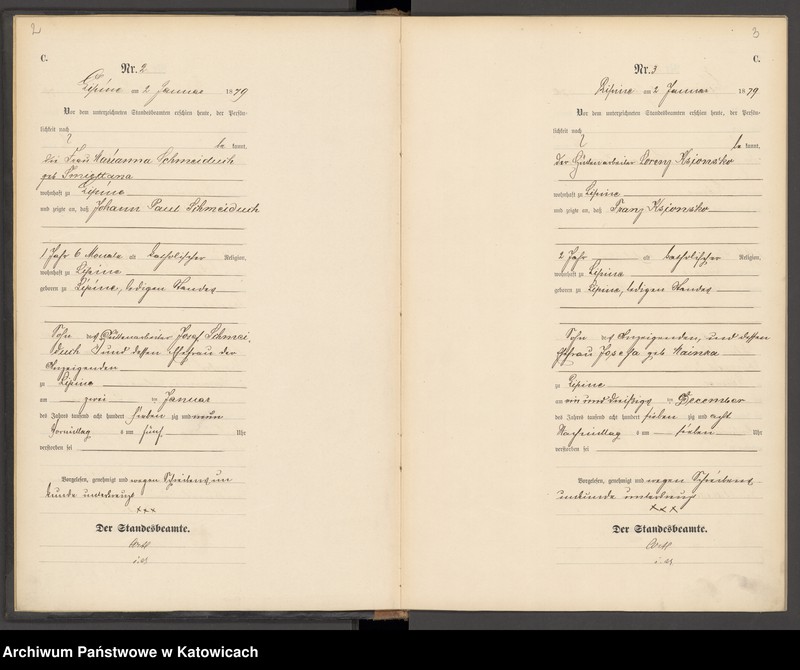 2
C.
Nr. 2
Lipine am 2 Januar 1879
Vor dem unterzeichneten Standesbeamten erschien heute, der Persön-
lichkeit nach
be kannt,
die Frau Marianna Schmeiduch
geb.
wohnhaft zu Lipine
und zeigte an, daß Johann Paul Schmeiduch
1 Jahr 6 Monate alt katholischer Religion,
wohnhaft zu Lipine
geboren zu Lipine, ledigen Standes
Sohn des Hüttenarbeiter Josef Schmei-
duch und dessen Ehefrau der
Anzeigenden
zu Lipine
am zwei ten Januar
des Jahres tausend acht hundert sieben zig und neun
Vormittag s um fünf Uhr
verstorben sei
Vorgelesen, genehmigt und wegen Schreibensun
kunde unterkreuzt
+++
Der Standesbeamte.
3
C.
Nr. 3
Lipine am 2 Januar 1879
Vor dem unterzeichneten Standesbeamten erschien heute, der Persön-
lichkeit nach
be kannt,
der Hüttenarbeiter Lorenz Ksionsko
wohnhaft zu Lipine
und zeigte an, daß Franz Ksionsko
2 Jahr alt katholischer Religion,
wohnhaft zu Lipine
geboren zu Lipine, ledigen Standes
Sohn des Anzeigenden, und dessen
Ehefrau Josefa geb Wainka
zu Lipine
am ein und dreißigs ten December
des Jahres tausend acht hundert sieben zig und acht
Nachmittag s um sieben Uhr
verstorben sei
Vorgelesen, genehmigt und wegen Schreibens-
unkunde unterkreuzt
+++
Der Standesbeamte.
Archiwum Państwowe w Katowicach